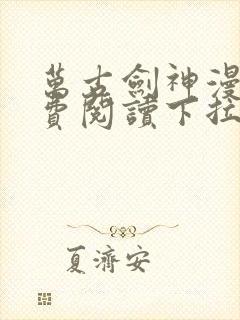 萬古劍神漫
費閱讀下拉
夏濟安